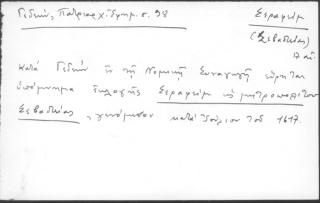 Γεδεών, Πατριαρχ. Ἐφημ. σ. 98
Σεραφείμ
(Σεβαστείας)
17 αἰ.
Κατά Γεδεών ἐν τῇ Νομικῇ Συναγωγῇ εὕρηται
ὑπόμνημα ἐκλογῆς Σεραφείμ ὡς μητροπολίτου
Σεβαστείας, γενόμενον κατά Ἰούνιον τοῦ 1617.